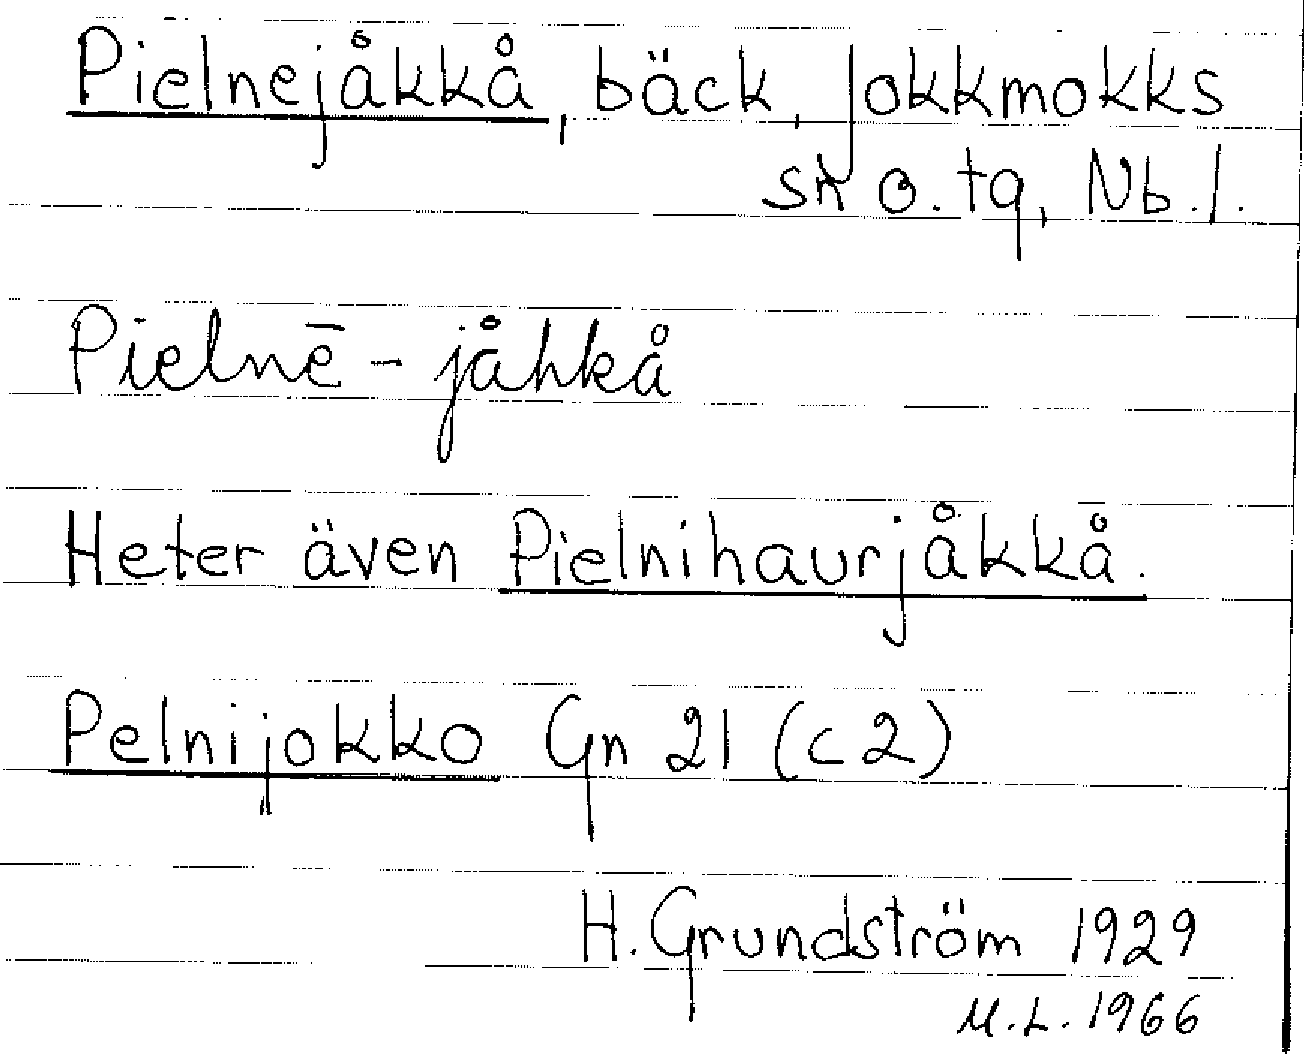 Pielnejåkkå, bäck, Jokkmokks
sn o. tg, Nb.l.
Pielnē-jåhkå
Heter även Pielnihaurjåkkå.
Pelnijokko Gn 21 (c2)
H. Grundström 1929
M.L. 1966